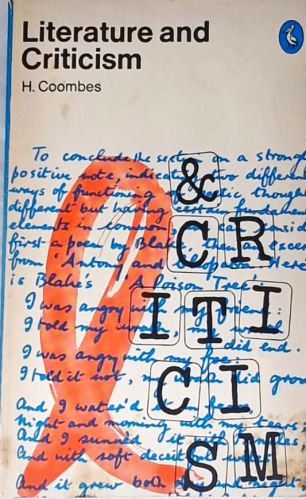 Literature and
Criticism
H. Coombes
To conclude the section on a strong
positive note, indicating two different
ways of functioning of poetic thought
different but having certain fundamental
elements in common,
first a poem by Blake, then
from 'Antony and Cleopatra'. Here
is Blake's 'A Poison Tree'
I was angry with my friend:
I told my wrath, my
did end.
I was angry with my foe:
I told it not, my wrath did grow
And I water'd it in fears
Night and morning with my tears;
And I sunned it with smiles,
And with soft deceitful wiles.
And it grew both day and night,
&
CR
ITI
CI
SM